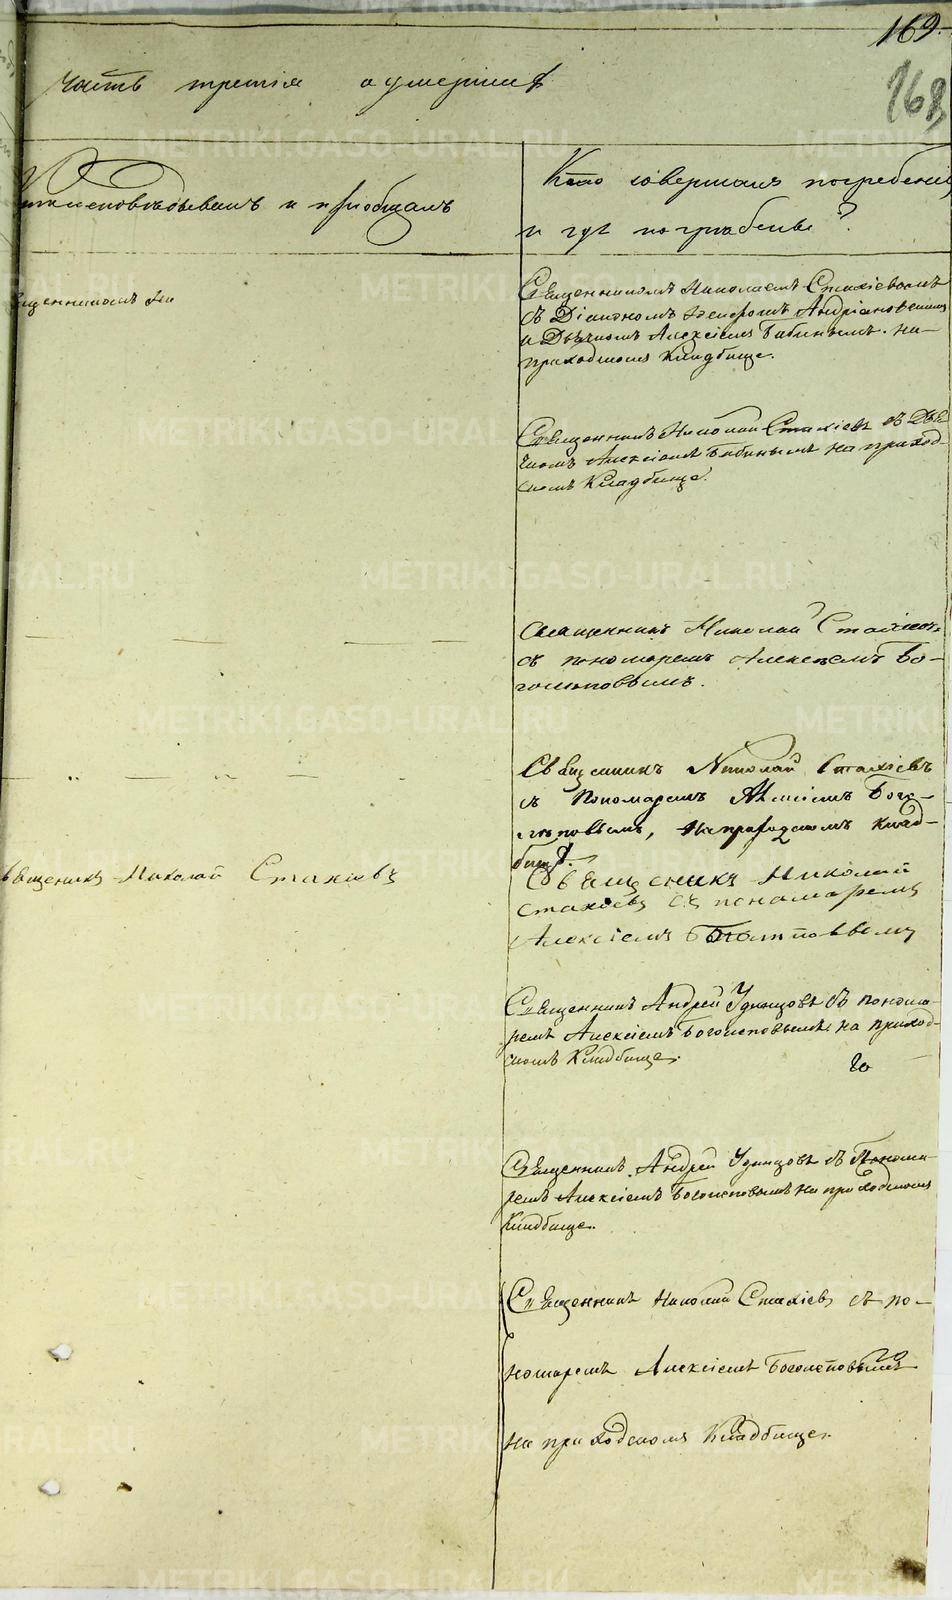 169.
168
Часть третія о умершихъ
исповѣдывалъ и пріобщалъ
Кто совершалъ погребеніе
и гдѣ погребены?
Священникомъ Николаемъ Стахіевымъ
съ Діакономъ Андріановскимъ
и Дьячкомъ Алексіемъ Бабинымъ. на
приходскомъ Кладбище.
Священникъ Николай Стахіевъ съ Дья
чкомъ Алексіемъ Бабинымъ на приход-
скомъ Кладбище.
Священникъ Николай Стахіевъ
съ пономаремъ Алексѣемъ Бо-
голѣповымъ.
Священникъ Николай Стахіевъ
съ Пономаремъ Алексіемъ Бого-
лѣповымъ, на приходскомъ клад-
бищѣ.
Священикъ Николай Стахіевъ
Священикъ Николай
Стахіевъ съ понамаремъ
Алексіемъ
Священникъ Андрей Удинцовъ съ понома-
ремъ Алексіемъ Боголеповымъ на приход-
скомъ Кладбище.
Священникъ Андрей Удинцовъ съ Понома-
ремъ Алексіемъ Боголеповымъ на приходскомъ
Кладбище.
Священникъ Николай Стахіевъ съ по-
номаремъ Алексіемъ Боголеповымъ
на приходскомъ Кладбище.
METRIKI.GASO-URAL.RU